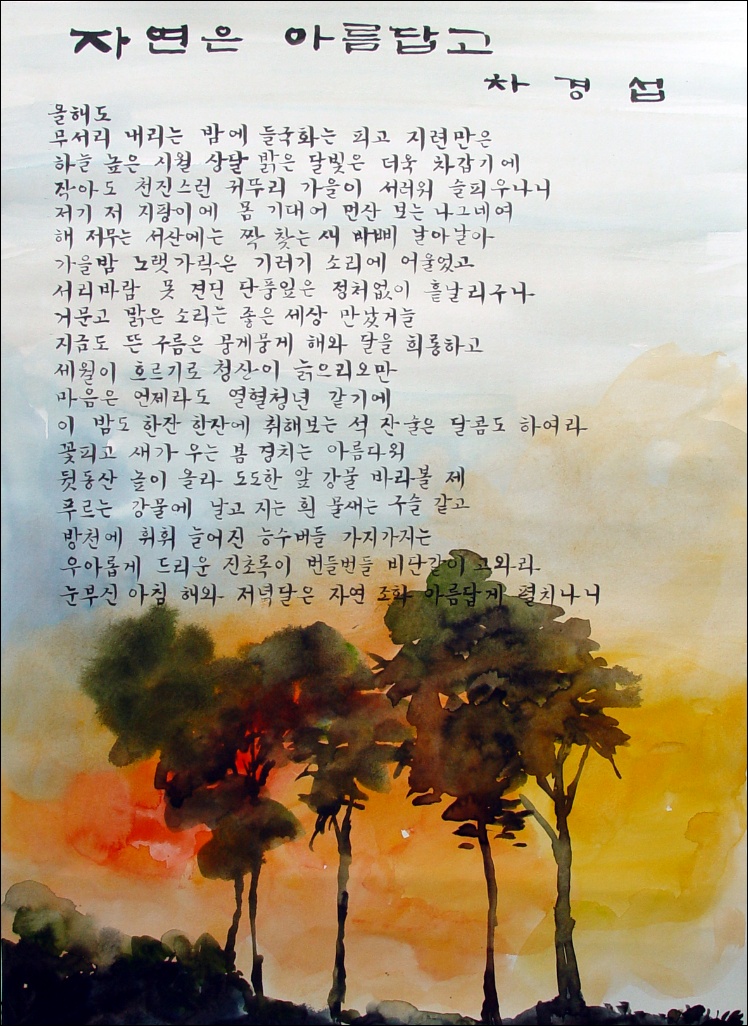 자연은 아름답고
차 경 섭
올해도
무서리 내리는 밤에 들국화는 피고 지련만은
하늘 높은 시월 상달 밝은 달빛은 더욱 차갑기에
작아도 천진스런 귀뚜리 가을이 서러워 슬피우나니
저기 저 지팡이에 몸 기대어 먼산 보는 나그네여
해 저무는 서산에는 짝 찾는 새 바삐 날아날아
가을밤 노랫가락은 기러기 소리에 어울었고
서리바람 못 견딘 단풍잎은 정처없이 흩날리구나
거문고 맑은 소리는 좋은 세상 만났거늘
지금도 뜬 구름은 뭉게뭉게 해와 달을 희롱하고
세월이 흐르기로 청산이 늙으리오만
마음은 언제라도 열혈청년 같기에
이 밤도 한잔 한잔에 취해보는 석 잔 술은 달콤도 하여라
꽃피고 새가 우는 봄 경치는 아름다워
뒷동산 높이 올라 도도한 앞 강물 바라볼 제
푸르는 강물에 날고 지는 흰 물새는 구슬 같고
방천에 휘휘 늘어진 능수버들 가지가지는
우아롭게 드리운 진초록이 번들번들 비단같이 고와라
눈부신 아침 해와 저녁달은 자연 조화 아름답게 펼치나니